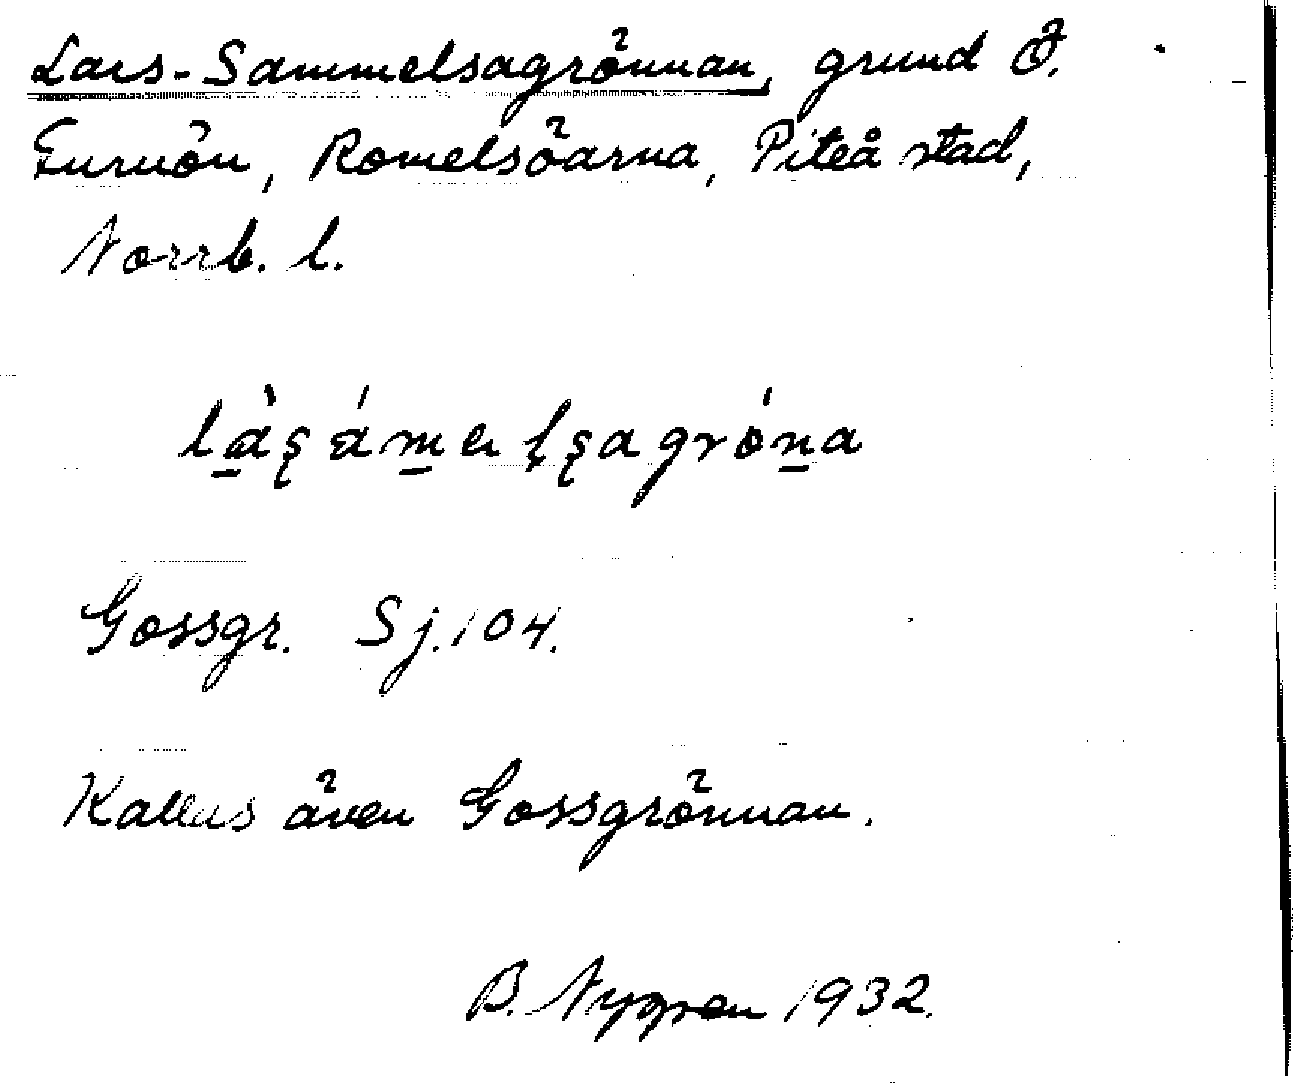 Lars-Sammelsagrönnan, grund Ö.
Furuön, Romelsöarna, Piteå stad,
Norrb. l.
Gossgr. Sj. 104.
Kallas även Gossgrönnan.
B. Nygren 1932.